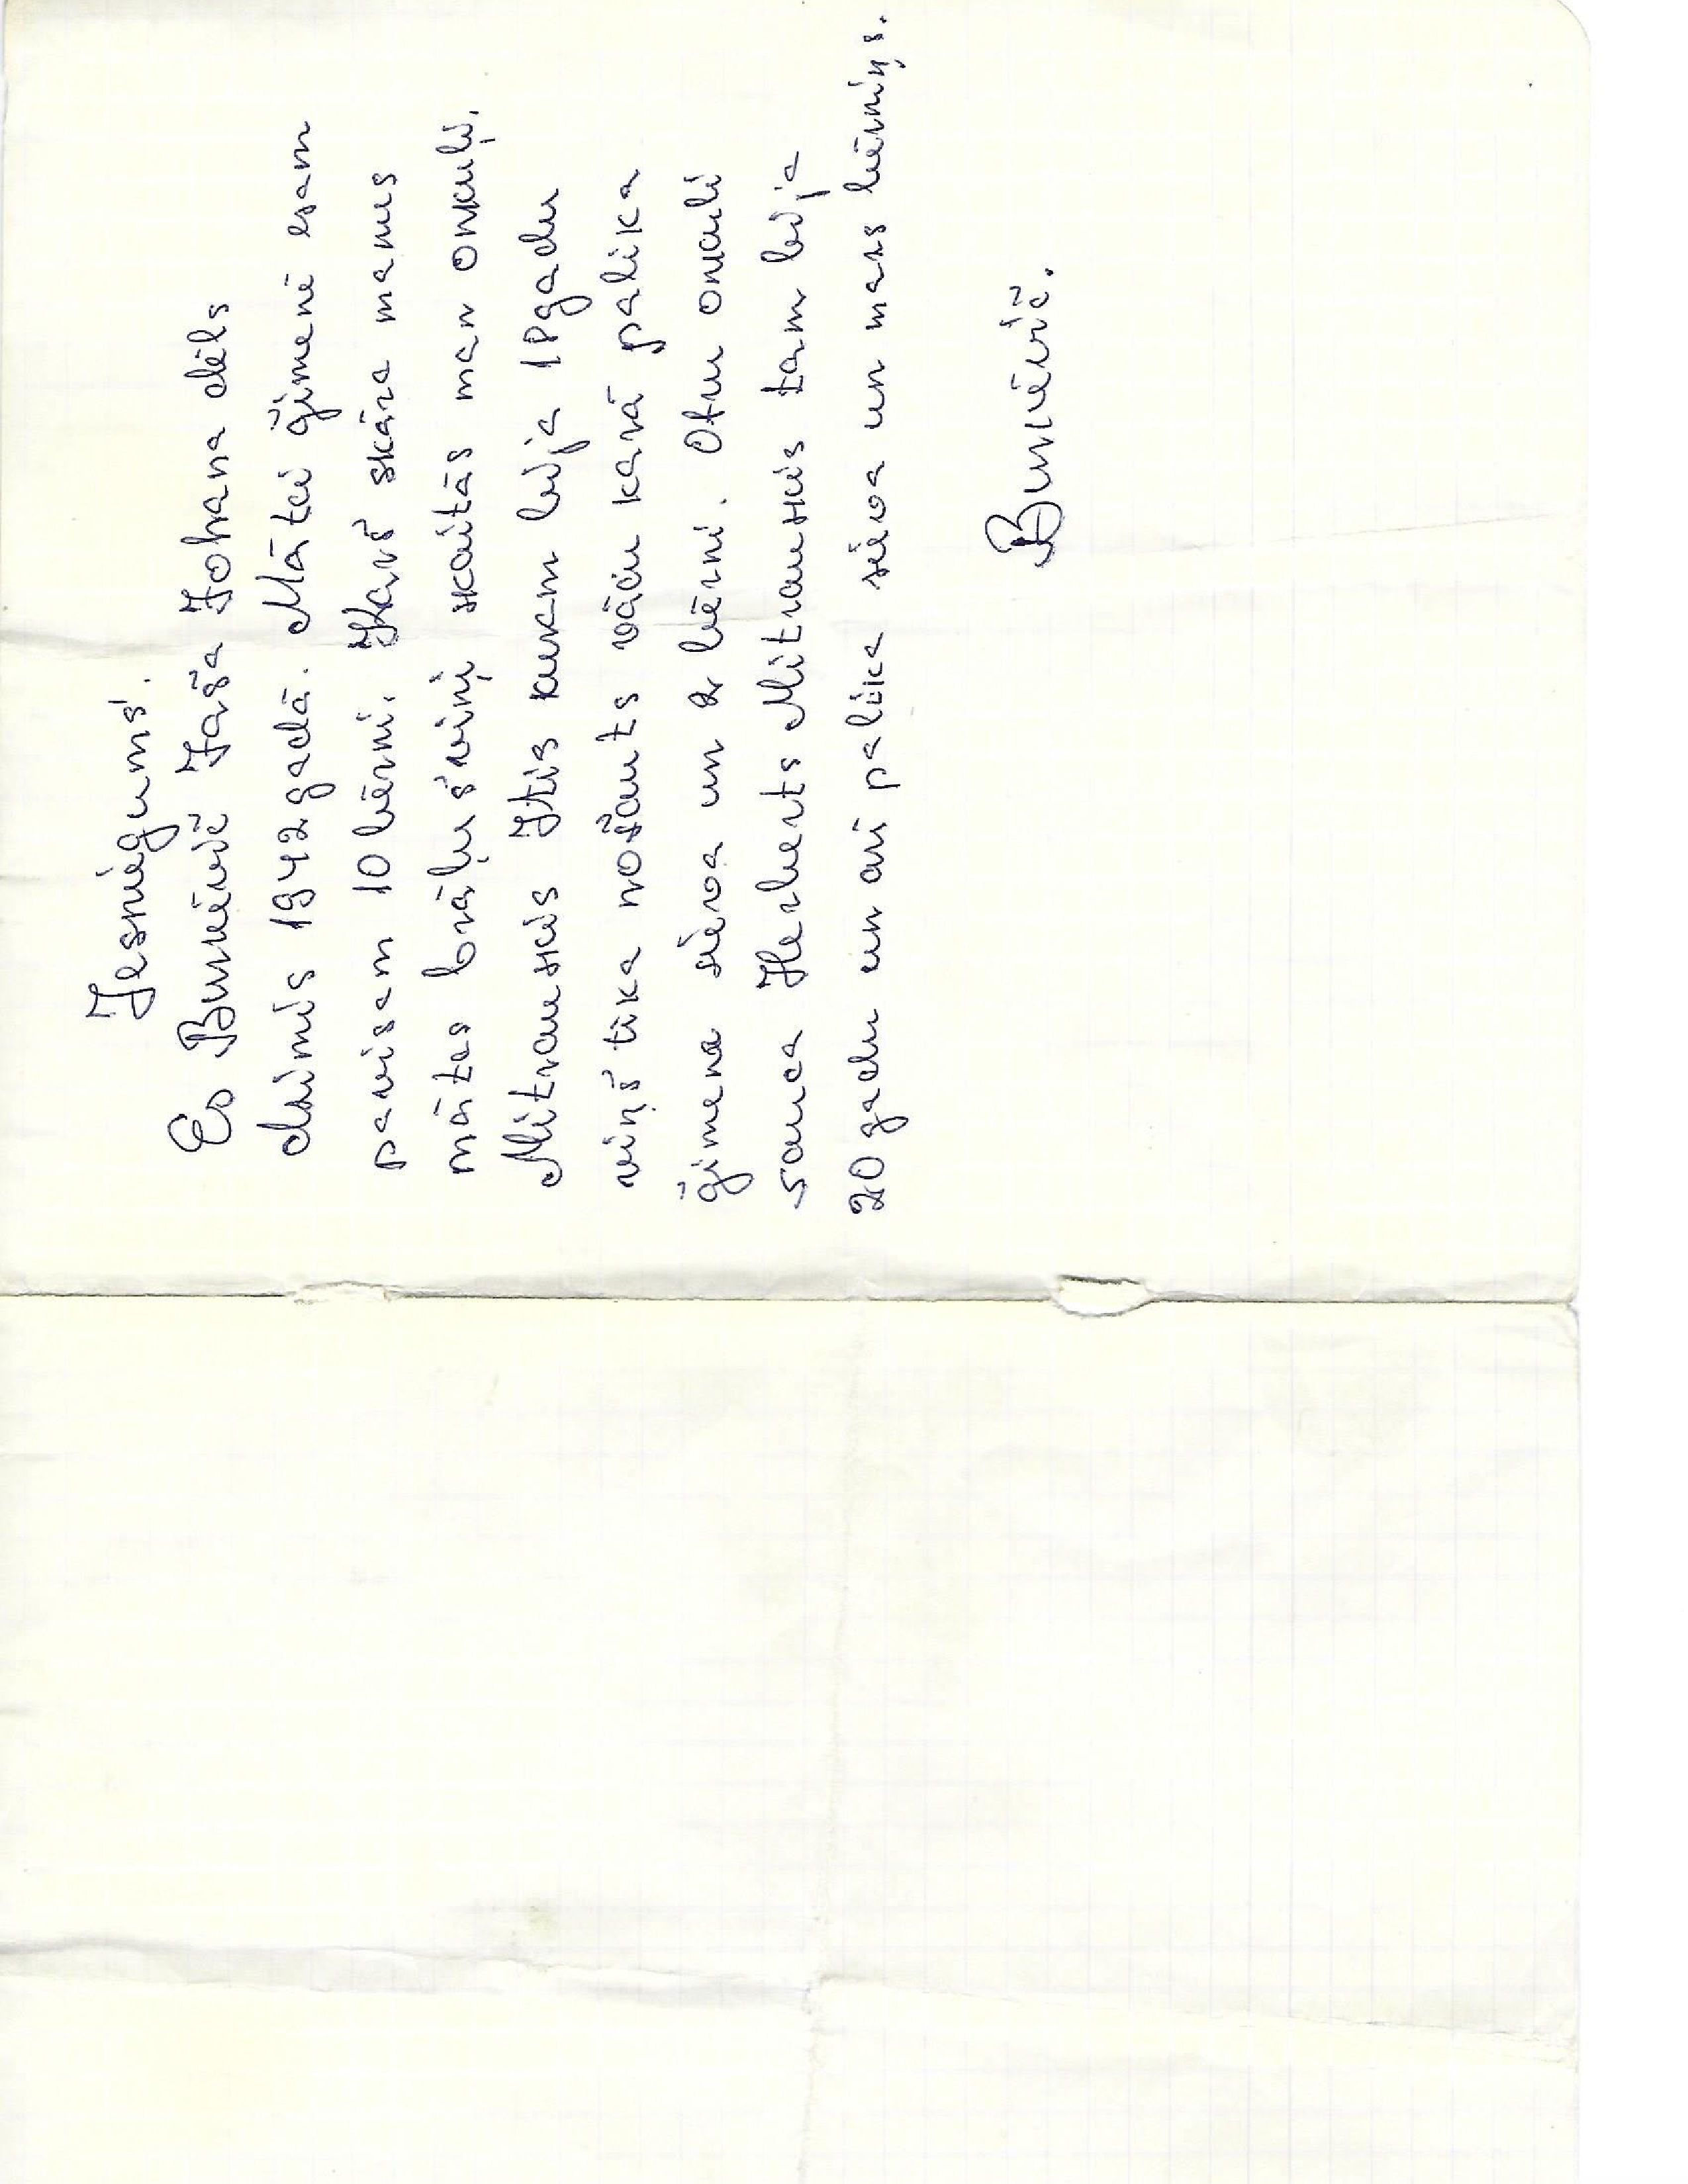 Iesniegums.
Es Burkēvič Jaša Johana dēls
dzimis 1942 gadā. Mātei ģimenē esam
pavisam 10 bērni. Karš skāra manus
mātes brāļus viņi skaitās man onkuļi.
Mitrauskis kuram bija 18 gadu
viņš tika nošauts vācu karā palika
ģimene sieva un 2 bērni. Otru onkuli
sauca Herberts Mitrauskis tam bija
20 gadu un arī palika sieva un mazs bērniņš.
Burkēvič.